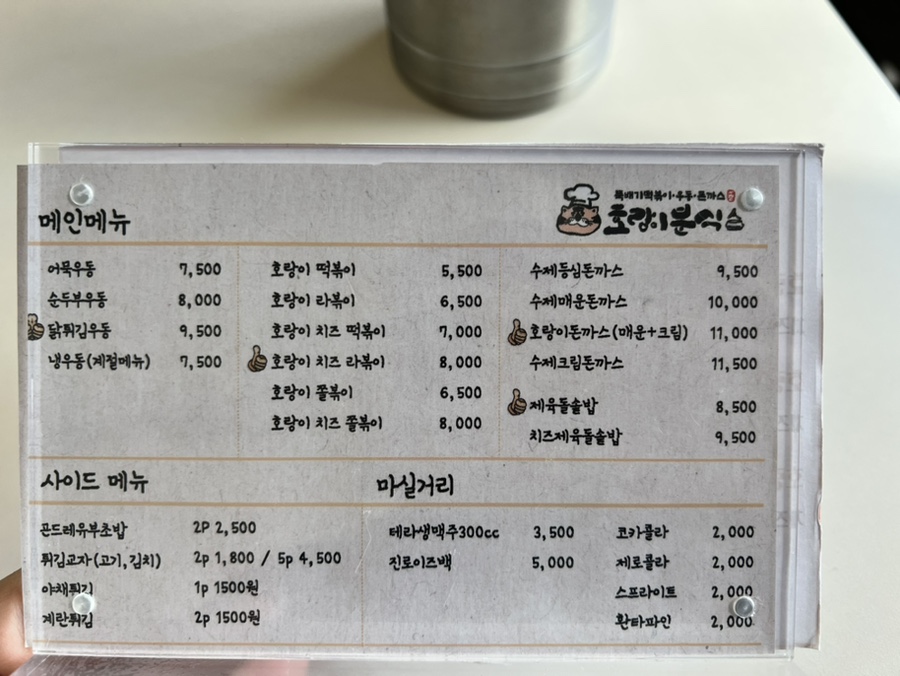 메인메뉴
뚝배기떡볶이·우동·돈까스
호랑이분식
어묵우동 7,500
순두부우동 8,000
닭튀김우동 9,500
냉우동(계절메뉴) 7,500
호랑이 떡볶이 5,500
호랑이 라볶이 6,500
호랑이 치즈 떡볶이 7,000
호랑이 치즈 라볶이 8,000
호랑이 쫄볶이 6,500
호랑이 치즈 쫄볶이 8,000
수제등심돈까스 9,500
수제매운돈까스 10,000
호랑이돈까스(매운+크림) 11,000
수제크림돈까스 11,500
제육돌솥밥 8,500
치즈제육돌솥밥 9,500
사이드 메뉴
곤드레유부초밥 2P 2,500
튀김교자(고기,김치) 2p 1,800 / 5p 4,500
야채튀김 1p 1500원
계란튀김 2p 1500원
마실거리
테라생맥주300cc 3,500
진로이즈백 5,000
코카콜라 2,000
제로콜라 2,000
스프라이트 2,000
환타파인 2,000